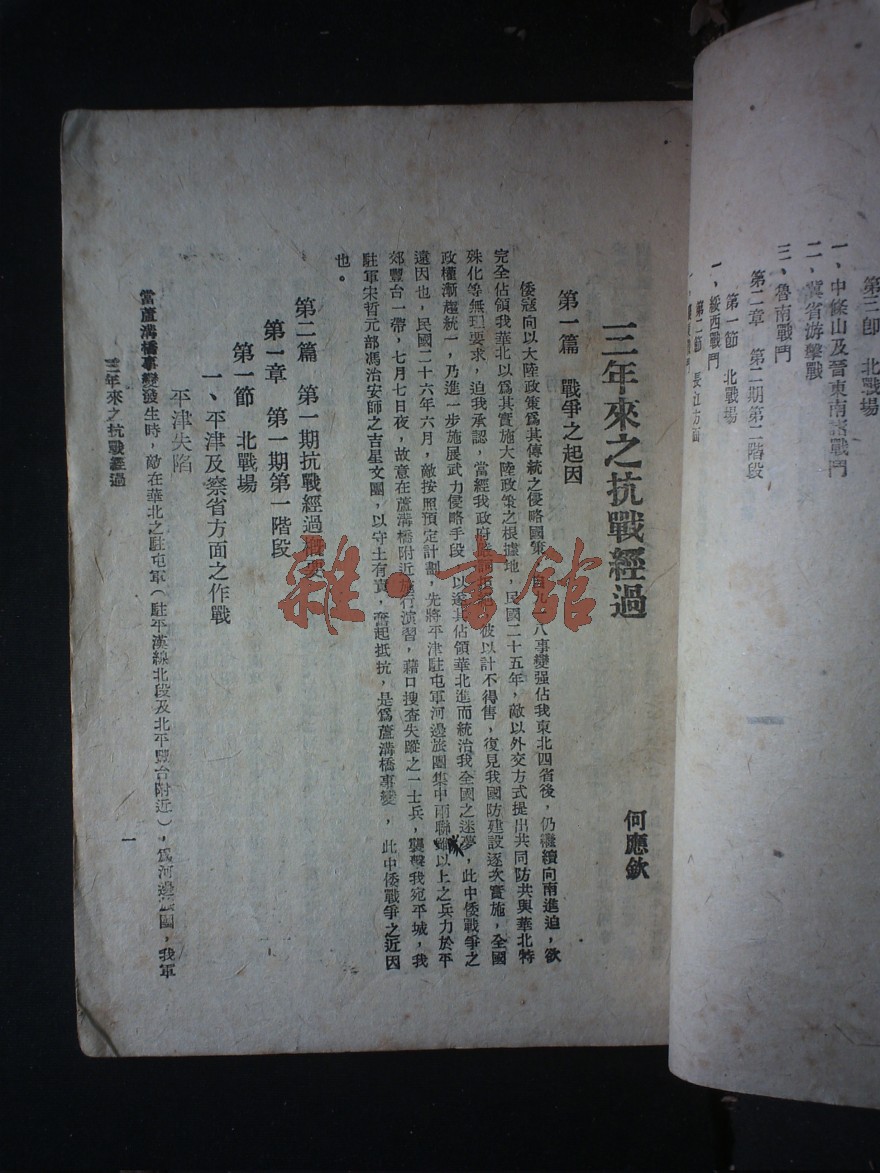 第三節 北戰場
一、中條山及晉東南諸戰鬥
二、冀省游擊戰
三、魯南戰鬥
第二章 第二期第二階段
第一節 北戰場
一、綏西戰鬥
第二節 長江方面
三年來之抗戰經過
何應欽
第一篇 戰爭之起因
倭寇向以大陸政策爲其傳統之侵略國策,自九一八事變强佔我東北四省後,仍繼續向南進迫,欲
完全佔領我華北以爲其實施大陸政策之根據地,民國二十五年,敵以外交方式提出共同防共與華北特
殊化等無理要求,迫我承認,當經我政府嚴詞拒絕,彼以計不得售,復見我國防建設逐次實施,全國
政權漸趨統一,乃進一步施展武力侵略手段,以遂其佔領華北進而統治我全國之迷夢,此中倭戰爭之
遠因也,民國二十六年六月,敵按照預定計劃,先將平津駐屯軍河邊旅團集中兩聯隊以上之兵力於平
郊豐台一帶,七月七日夜,故意在蘆溝橋附近施行演習,藉口搜查失蹤之一士兵,襲擊我宛平城,我
駐軍宋哲元部馮治安師之吉星文團,以守土有責,奮起抵抗,是爲蘆溝橋事變,此中倭戰爭之近因
也。
第二篇 第一期抗戰經過概要
第一章 第一期第一階段
第一節 北戰場
一、平津及察省方面之作戰
平津失陷
當蘆溝橋事變發生時,敵在華北之駐屯軍(駐平漢線北段及北平豐台附近),爲河邊旅團,我軍
三年來之抗戰經過
一
雜·書館